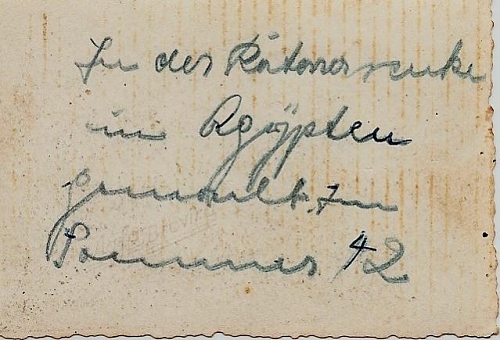 In der
in Ägypten
gemalt. Im
Sommer 42